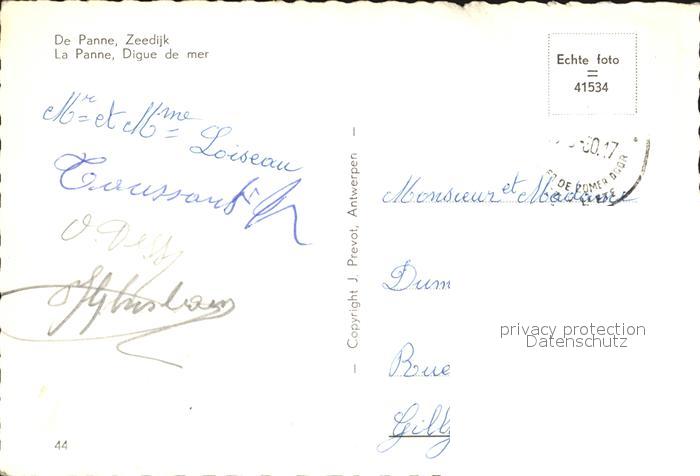 De Panne, Zeedijk
La Panne, Digue de mer
Echte foto
=
41534
Mr et Mme
Loiseau
Toussaint
Monsieur et Madame
DE ZOMER DOOR
L'ETE
Copyright J. Prevot, Antwerpen
Dum
privacy protection
Datenschutz
Rue
Gilly
44